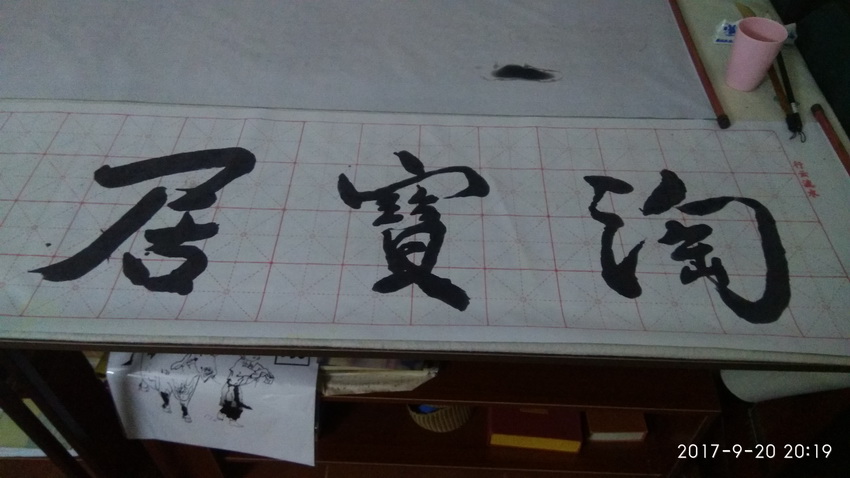 淘寶居
2017-9-20 20:19